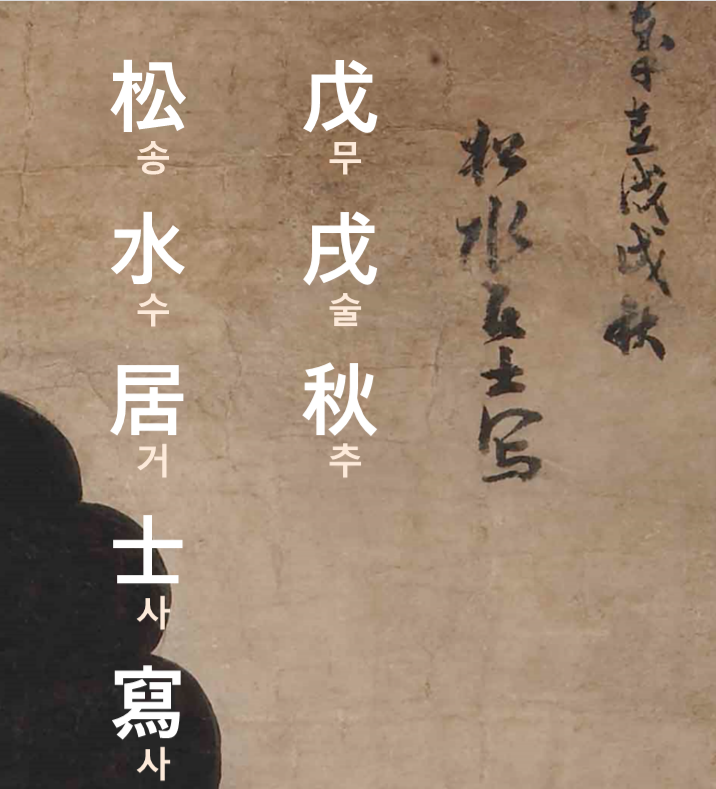 戊戌秋
松水居士写
戊戌秋
무술추
松水居士寫
송수거사사